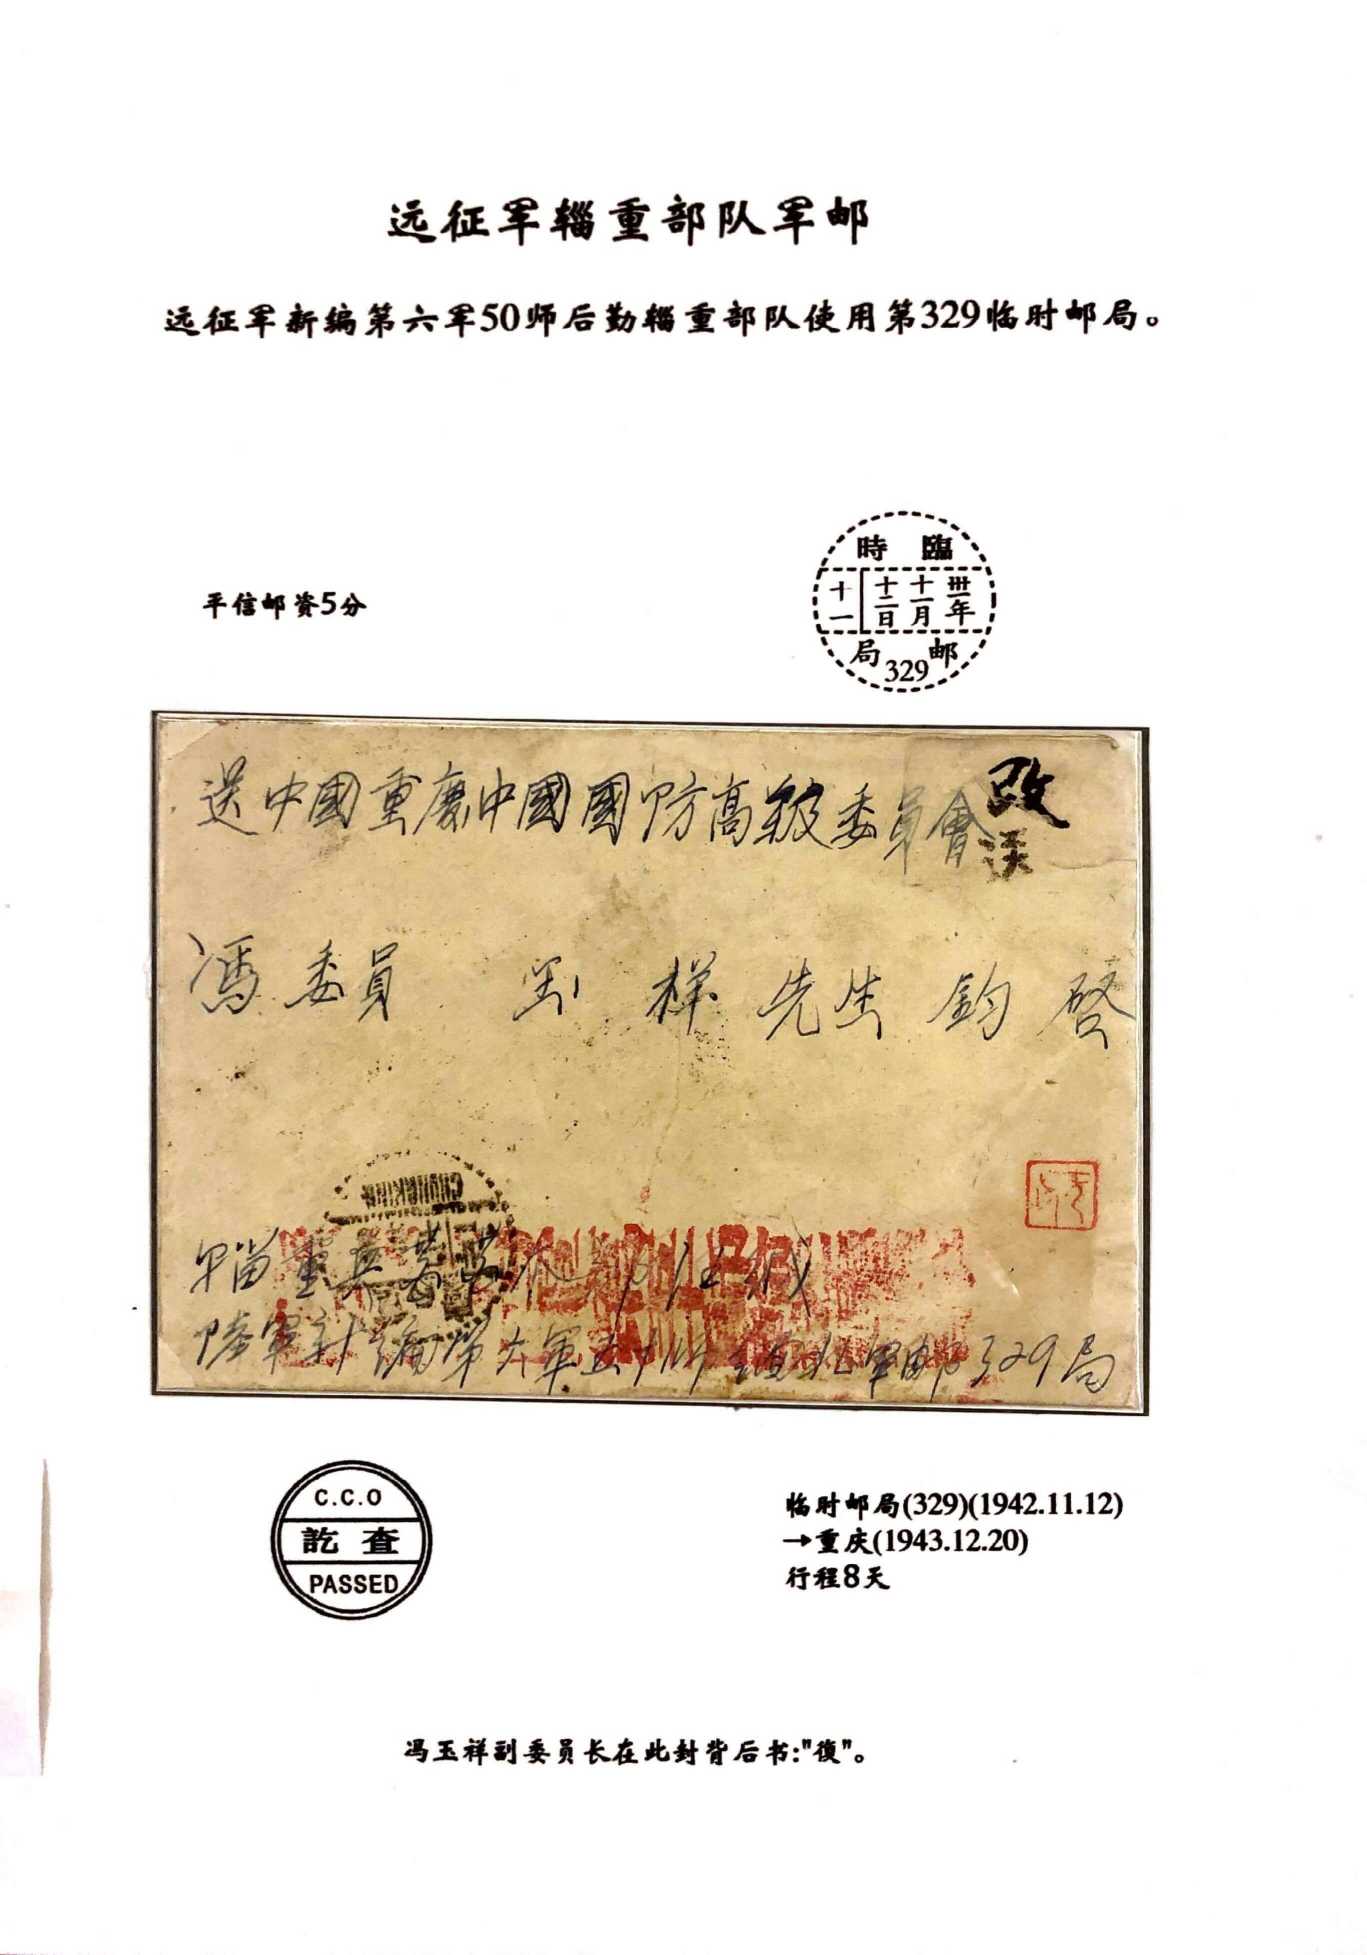 远征军辎重部队军邮
远征军新编第六军50师后勤辎重部队使用第329临时邮局。
平信邮资5分
時 臨
十一 十二日 十一月 卅一年
局 329 邮
送中國重慶中國國防高級委員會
改
送
馮委員 玉祥先生鈞啓
CHUNGKING
輜重兵
陸軍新編第六軍五十師 緬北軍郵329局
C.C.O
訖 查
PASSED
临时邮局(329)(1942.11.12)
→重庆(1943.12.20)
行程8天
冯玉祥副委员长在此封背后书:"復"。